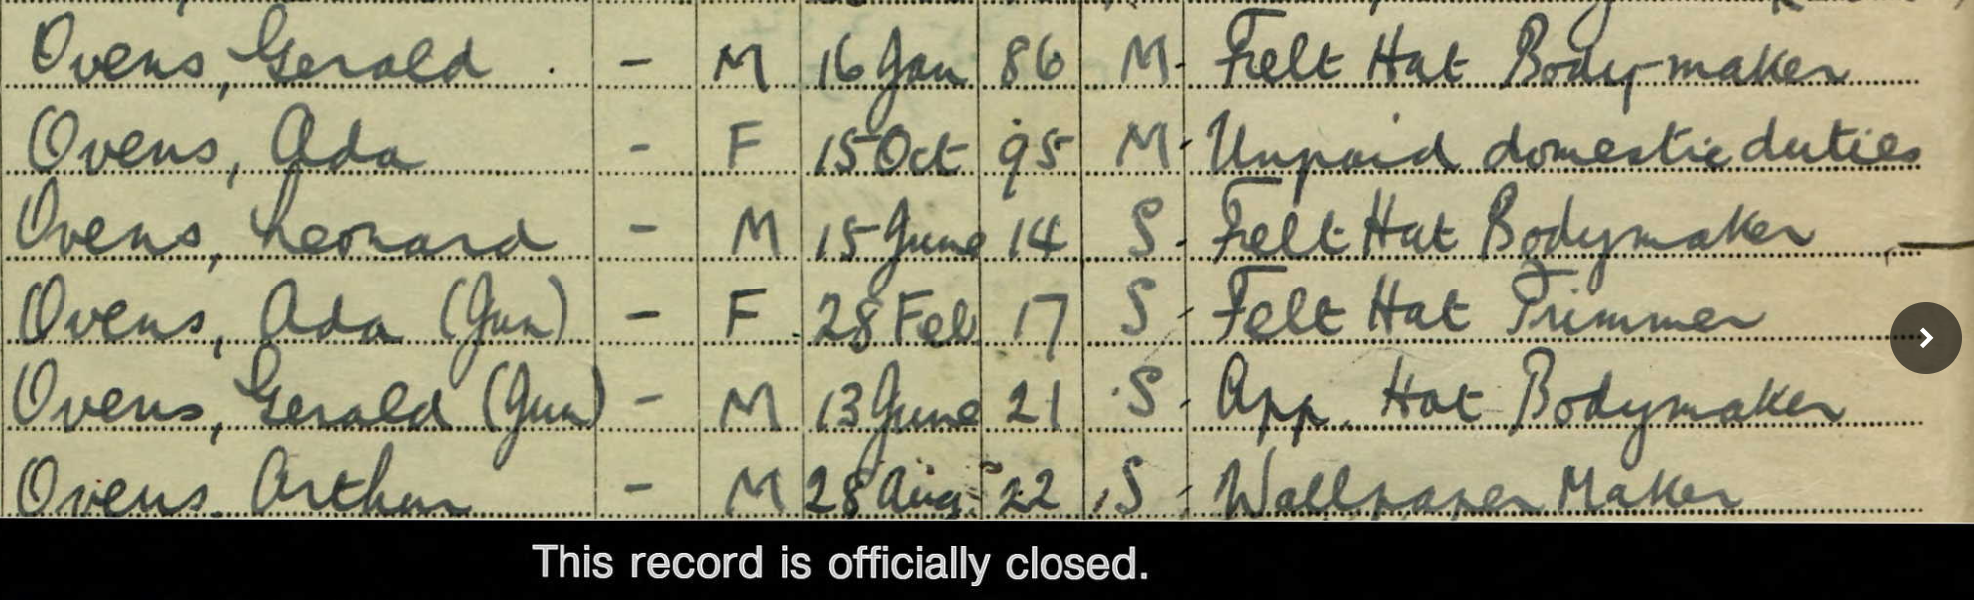 Ovens, Gerald - M 16 Jan 86 M. Felt Hat Body-maker
Ovens, Ada - F 15 Oct 95 M. Unpaid domestic duties
Ovens, Leonard - M 15 June 14 S. Felt Hat Bodymaker
Ovens, Ada (Jun) - F 28 Feb 17 S Felt Hat Trimmer
Ovens, Gerald (Jun) - M 13 June 21 S. App. Hat Bodymaker
Ovens. Arthur - M 28 Aug. 22 S Wallpaper Maker
This record is officially closed.